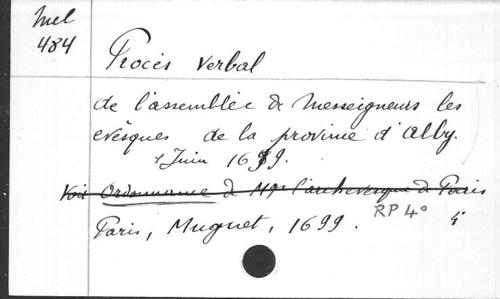 Mel
484
Procès verbal
de l'assemblée de Messeigneurs les
evêques de la province d'Alby.
Juin 1699.
Voir Ordonnance de Mgr l'archevesque de Paris
Paris, Muguet, 1699.
RP 4°